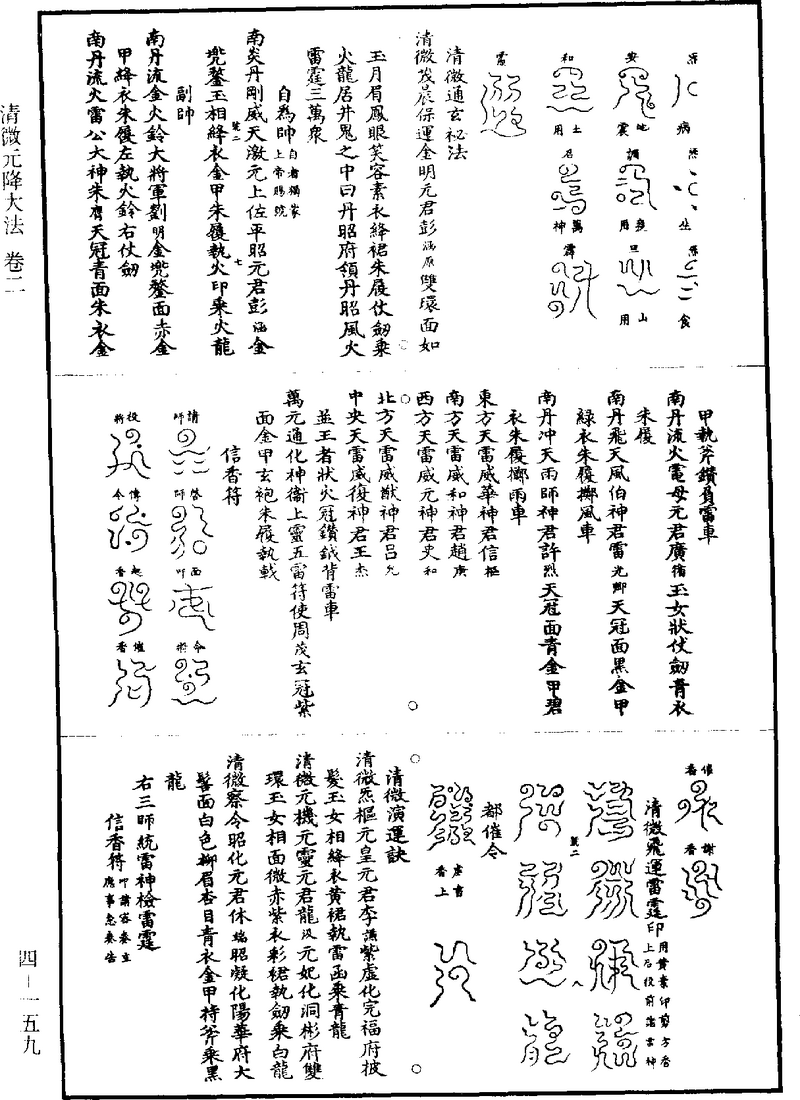 清微元降大法 卷二
四－一五九
病
安
地
震
和
土
用
霞
坐
調
用
召
萬
神
食
旦
山
用
霹
清微通玄祕法
清微茂晨保運金明元君彭涵原雙環面如
玉月眉鳳眼笑容素衣絳裙朱履仗劒乘
火龍居井鬼之中曰丹昭府領丹昭風火
雷霆三萬衆
自爲帥
自者獨家
上帝賜號
南炎丹剛威天激元上佐平昭元君彭涵金
兜鍪玉相絳衣金甲朱履執火印乘火龍
副帥
南丹流金火鈴大將軍劉明金兜鍪面赤金
甲絳衣朱履左執火鈴右仗劒
南丹流火雷公大神朱 天冠青面朱衣金
甲執斧鑽負雷車
南丹流火電母元君廣 玉女狀仗劒青衣
朱履
南丹飛天風伯神君雷光 天冠面黑金甲
綠衣朱履擲風車
南丹冲天雨師神君許烈天冠面青金甲碧
衣朱履擲雨車
東方天雷威華神君信極
南方天雷威和神君趙庚
西方天雷威元神君史和
北方天雷威猷神君呂允
中央天雷威復神君王杰
並王者狀火冠鑽鉞背雷車
萬元通化神衞上靈五雷符使周茂玄冠紫
面金甲玄袍朱履執戟
信香符
請師
啓師
面
令將
役將
傳令
起香
催香
催香
謝香
清微飛運雷霆印
用黃素印剪方香
上
號二
都催令
香上
清微演運訣
清微炁樞元皇元君李 紫虛化完福府披
髮玉女相絳衣黃裙執雷函乘青龍
清微元機元靈元君龍汲元妃化洞彬府雙
環玉女相面微赤紫衣彩裙執劒乘白龍
清微察令昭化元君休端昭凝化陽華府大
髻面白色柳眉杏目青衣金甲持斧乘黑
龍
右三師統雷神檢雷霆
信香符
應事急奏告